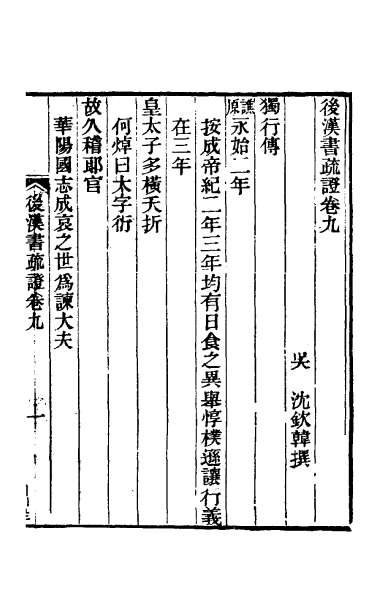 後漢書疏證卷九
吳　沈欽韓撰
獨行傳
譙原永始二年
按成帝紀二年三年均有日食之異舉惇樸遜讓行義
在三年
皇太子多橫夭折
何焯曰太字衍
故久稽郎官
華陽國志成哀之世爲諫大夫
後漢書疏證卷九
一